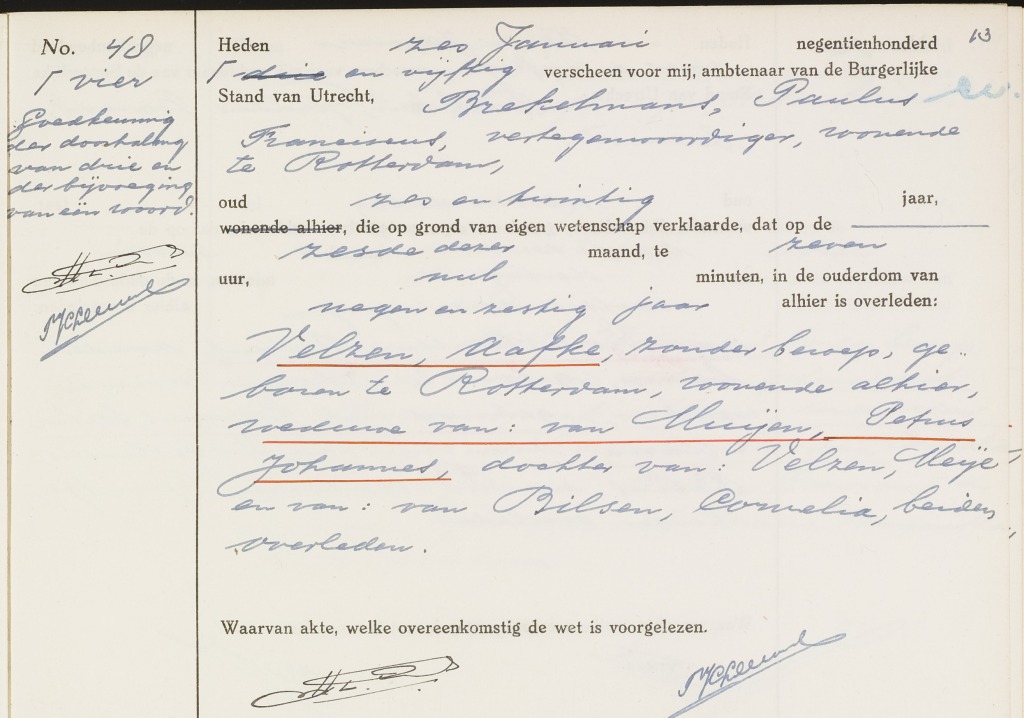 No. 48
┌ vier
Goedkeuring
der doorhaling
van drie en
der bijvoeging
van één woord.
13
Heden zes Januari negentienhonderd
┌ drie en vijftig verscheen voor mij, ambtenaar van de Burgerlijke
Stand van Utrecht, Brekelmans, Paulus
Franciscus, vertegenwoordiger, wonende
te Rotterdam,
oud zes en twintig jaar,
wonende alhier, die op grond van eigen wetenschap verklaarde, dat op de
zesde dezer maand, te zeven
uur, nul minuten, in de ouderdom van
negen en zestig jaar alhier is overleden:
Velzen, Aafke, zonder beroep, ge„
boren te Rotterdam, wonende alhier,
weduwe van: van Muijen, Petrus
Johannes, dochter van: Velzen, Meije
en van: van Bilsen, Cornelia, beiden
overleden.
Waarvan akte, welke overeenkomstig de wet is voorgelezen.